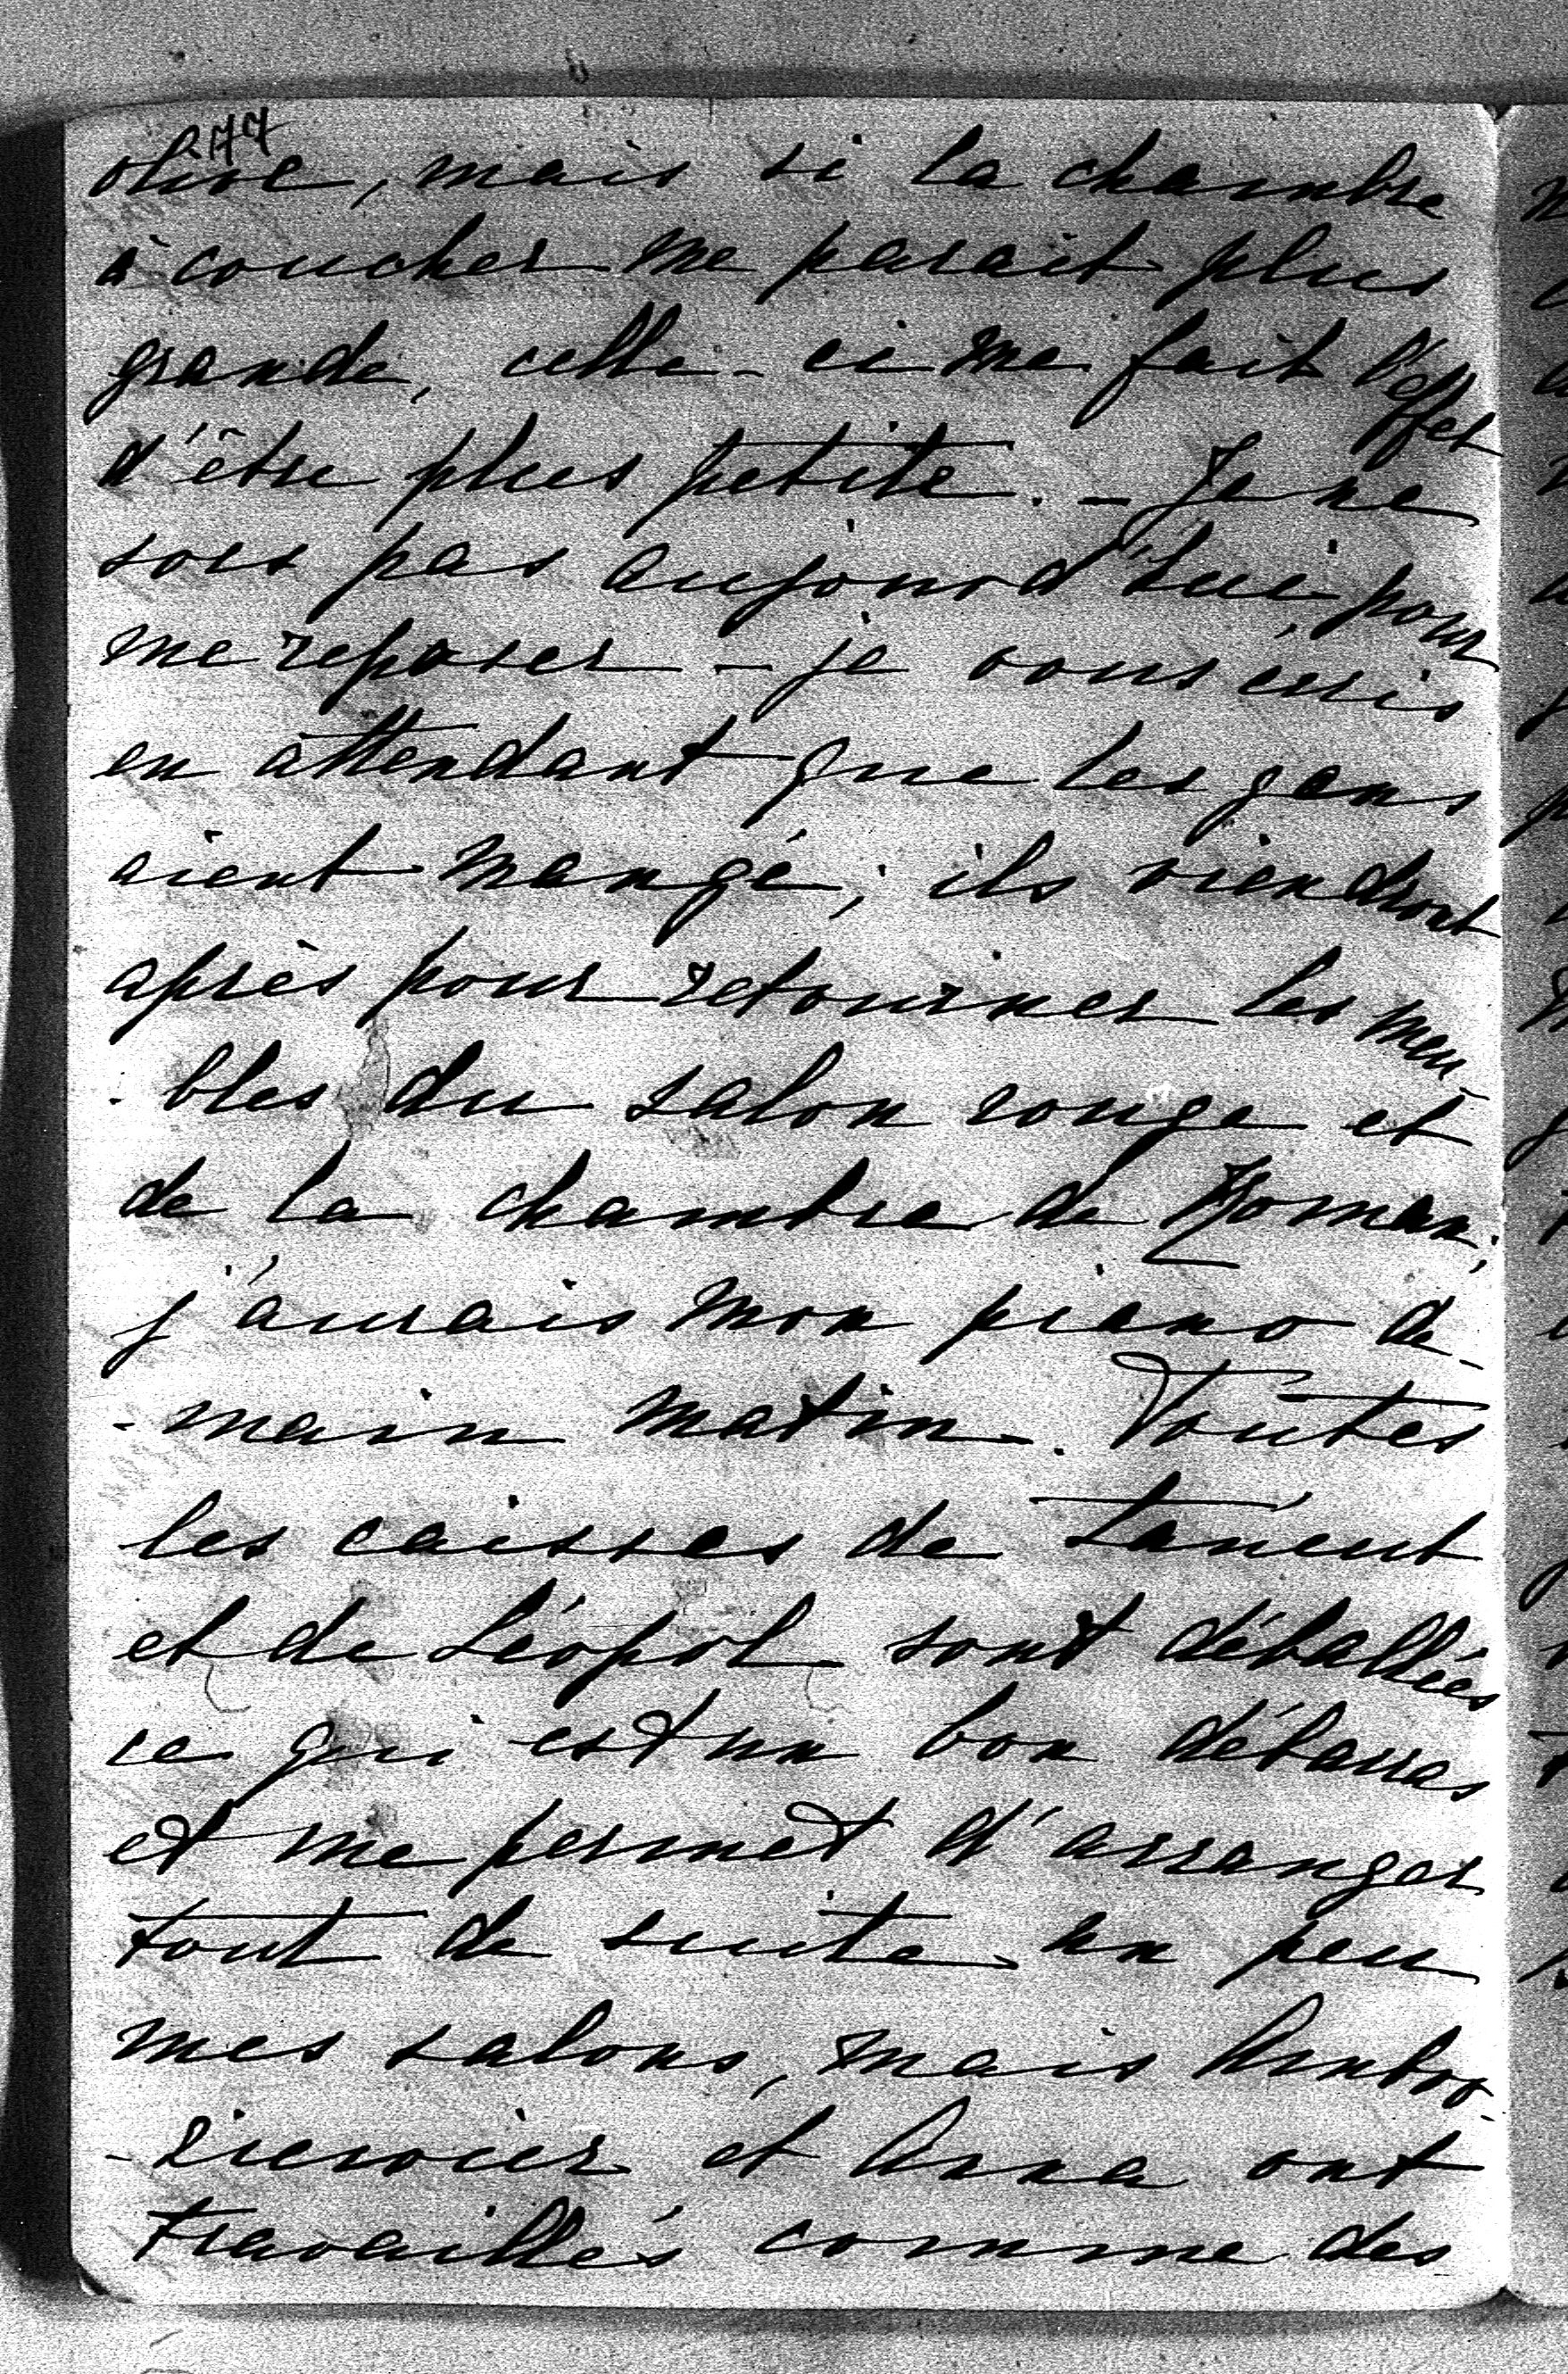 277
olive, mais si la chambre
à coucher me parait plus
grande, celle-ci me fait l'effet
d'être plus petite. - Je ne
sors pas aujourd'hui, pour
me reposer - je vous écris
en attendant que les gens
aient mangé; ils viendront
après pour retourner les meu-
-bles du salon rouge et
de la chambre de Roman;
j'aurais mon piano de-
-main matin. Toutes
les caisses de Łańcut
et de Léopol sont déballées
ce qui est un bon débarras
et me permet d'arranger
tout de suite un peu
mes salons, mais Ambro-
-ziewicz et Anna ont
travaillés comme des